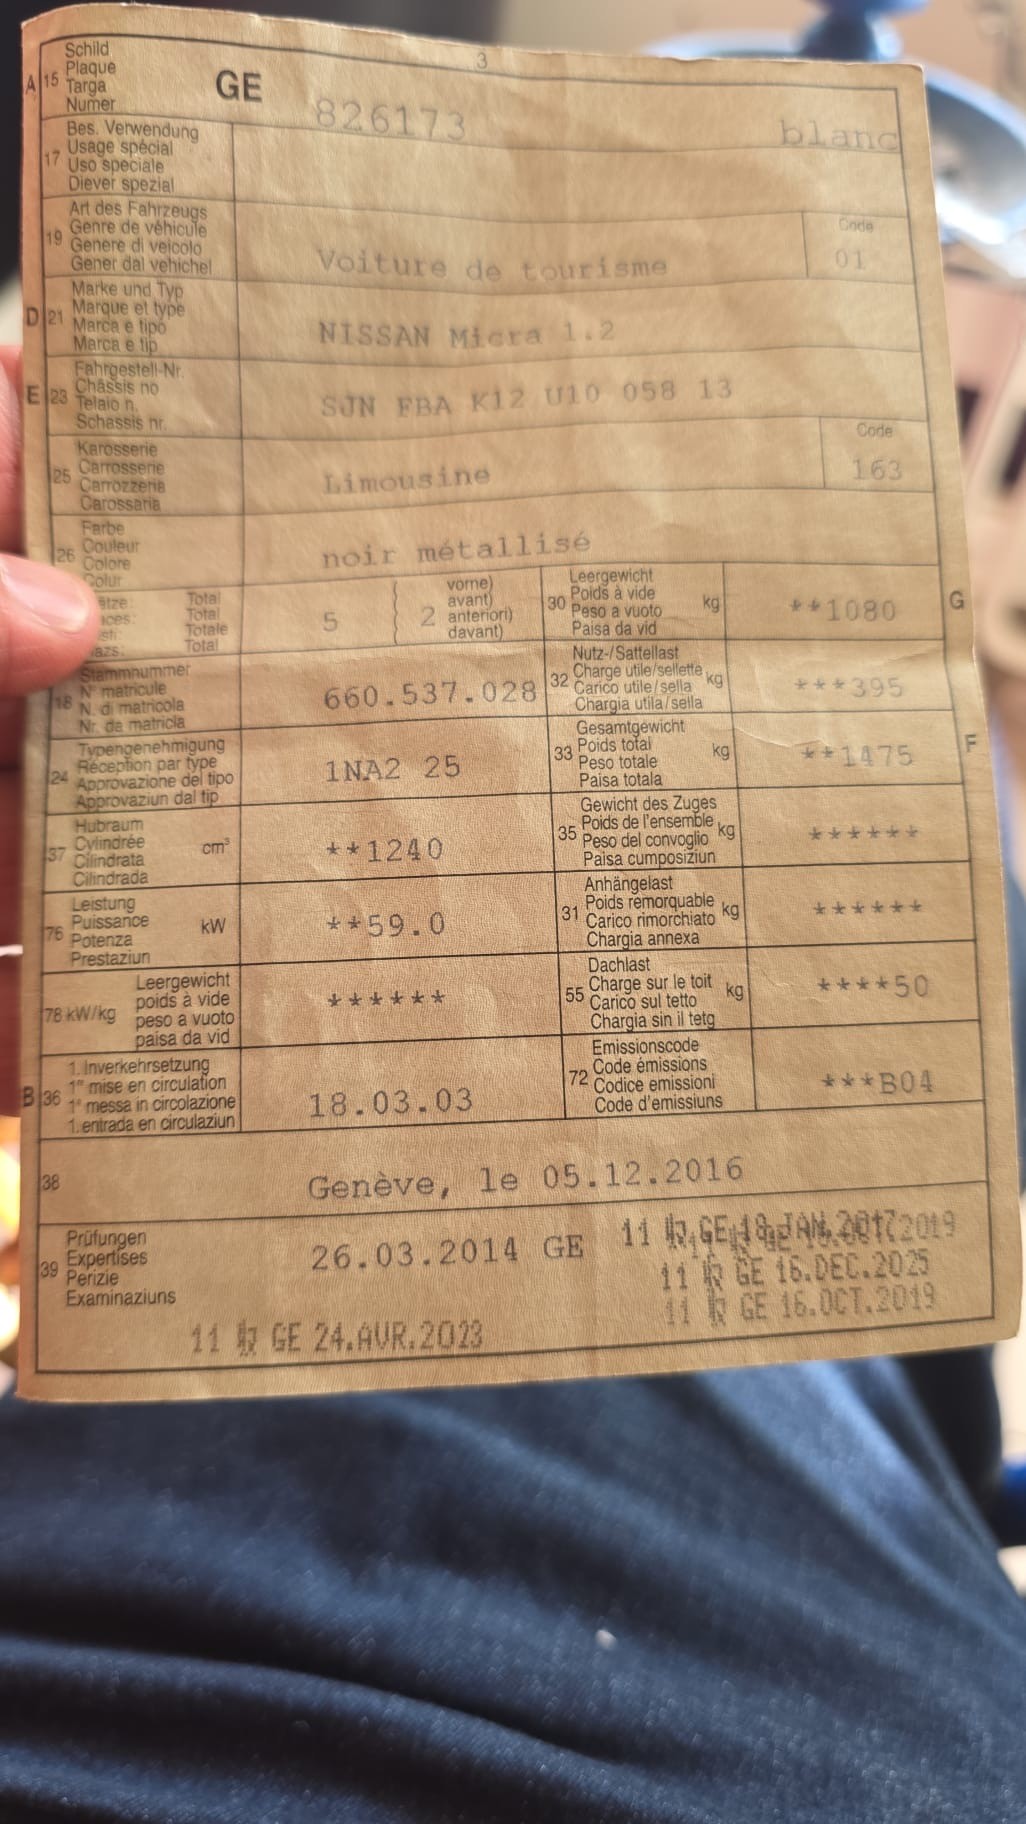 3
A 15 Schild
Plaque
Targa
Numer
GE 826173 blanc
17 Bes. Verwendung
Usage spécial
Uso speciale
Diever spezial
19 Art des Fahrzeugs
Genre de véhicule
Genere di veicolo
Gener dal vehichel
Voiture de tourisme
Code
01
D 21 Marke und Typ
Marque et type
Marca e tipo
Marca e tip
NISSAN Micra 1.2
E 23 Fahrgestell-Nr.
Châssis no
Telaio n.
Schassis nr.
SJN FBA K12 U10 058 13
25 Karosserie
Carrosserie
Carrozzeria
Carossaria
Limousine
Code
163
26 Farbe
Couleur
Colore
Colur
noir métallisé
Total
Total
Totale
Total
5
2
vorne)
avant)
anteriori)
davant)
30 Leergewicht
Poids à vide
Peso a vuoto
Paisa da vid
kg
**1080
G
18 Stammnummer
N° matricule
N. di matricola
Nr. da matricla
660.537.028
32 Nutz-/Sattellast
Charge utile/sellette
Carico utile/sella
Chargia utila/sella
kg
***395
24 Typengenehmigung
Réception par type
Approvazione del tipo
Approvaziun dal tip
1NA2 25
33 Gesamtgewicht
Poids total
Peso totale
Paisa totala
kg
**1475
F
37 Hubraum
Cylindrée
Cilindrata
Cilindrada
cm³
**1240
35 Gewicht des Zuges
Poids de l'ensemble
Peso del convoglio
Paisa cumposiziun
kg
******
76 Leistung
Puissance
Potenza
Prestaziun
kW
**59.0
31 Anhängelast
Poids remorquable
Carico rimorchiato
Chargia annexa
kg
******
78 kW/kg
Leergewicht
poids à vide
peso a vuoto
paisa da vid
******
55 Dachlast
Charge sur le toit
Carico sul tetto
Chargia sin il tetg
kg
****50
B 36 1. Inverkehrsetzung
1re mise en circulation
1a messa in circolazione
1. entrada en circulaziun
18.03.03
72 Emissionscode
Code émissions
Codice emissioni
Code d'emissiuns
***B04
38
Genève, le 05.12.2016
39 Prüfungen
Expertises
Perizie
Examinaziuns
26.03.2014 GE
11 GE 18 JAN. 2017
2019
11 GE 16.DEC.2025
11 GE 16.OCT.2019
11 GE 24.AVR.2023